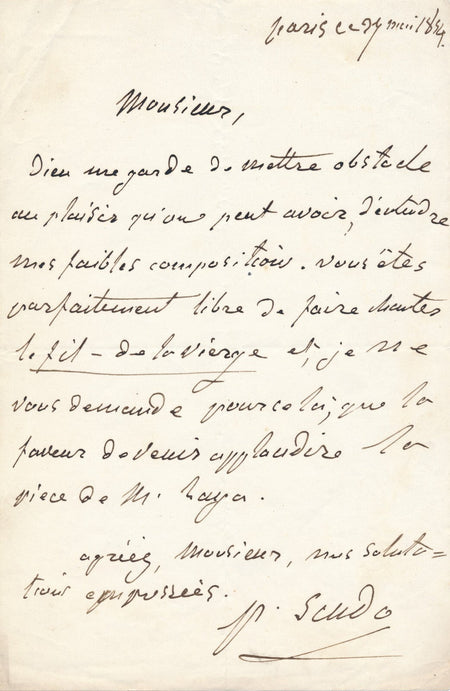 paris ce 27 mai 1854.
Monsieur,
Dieu me garde de mettre obstacle
au plaisir qu'on peut avoir, d'entendre
mes faibles composition. vous êtes
parfaitement libre de faire chanter
le fil-de la vierge et, je ne
vous demande pour cela, que la
faveur de venir applaudire la
pièce de M. Laya.
agréez, Monsieur, mes saluta=
tions empressées.
p. Scudo